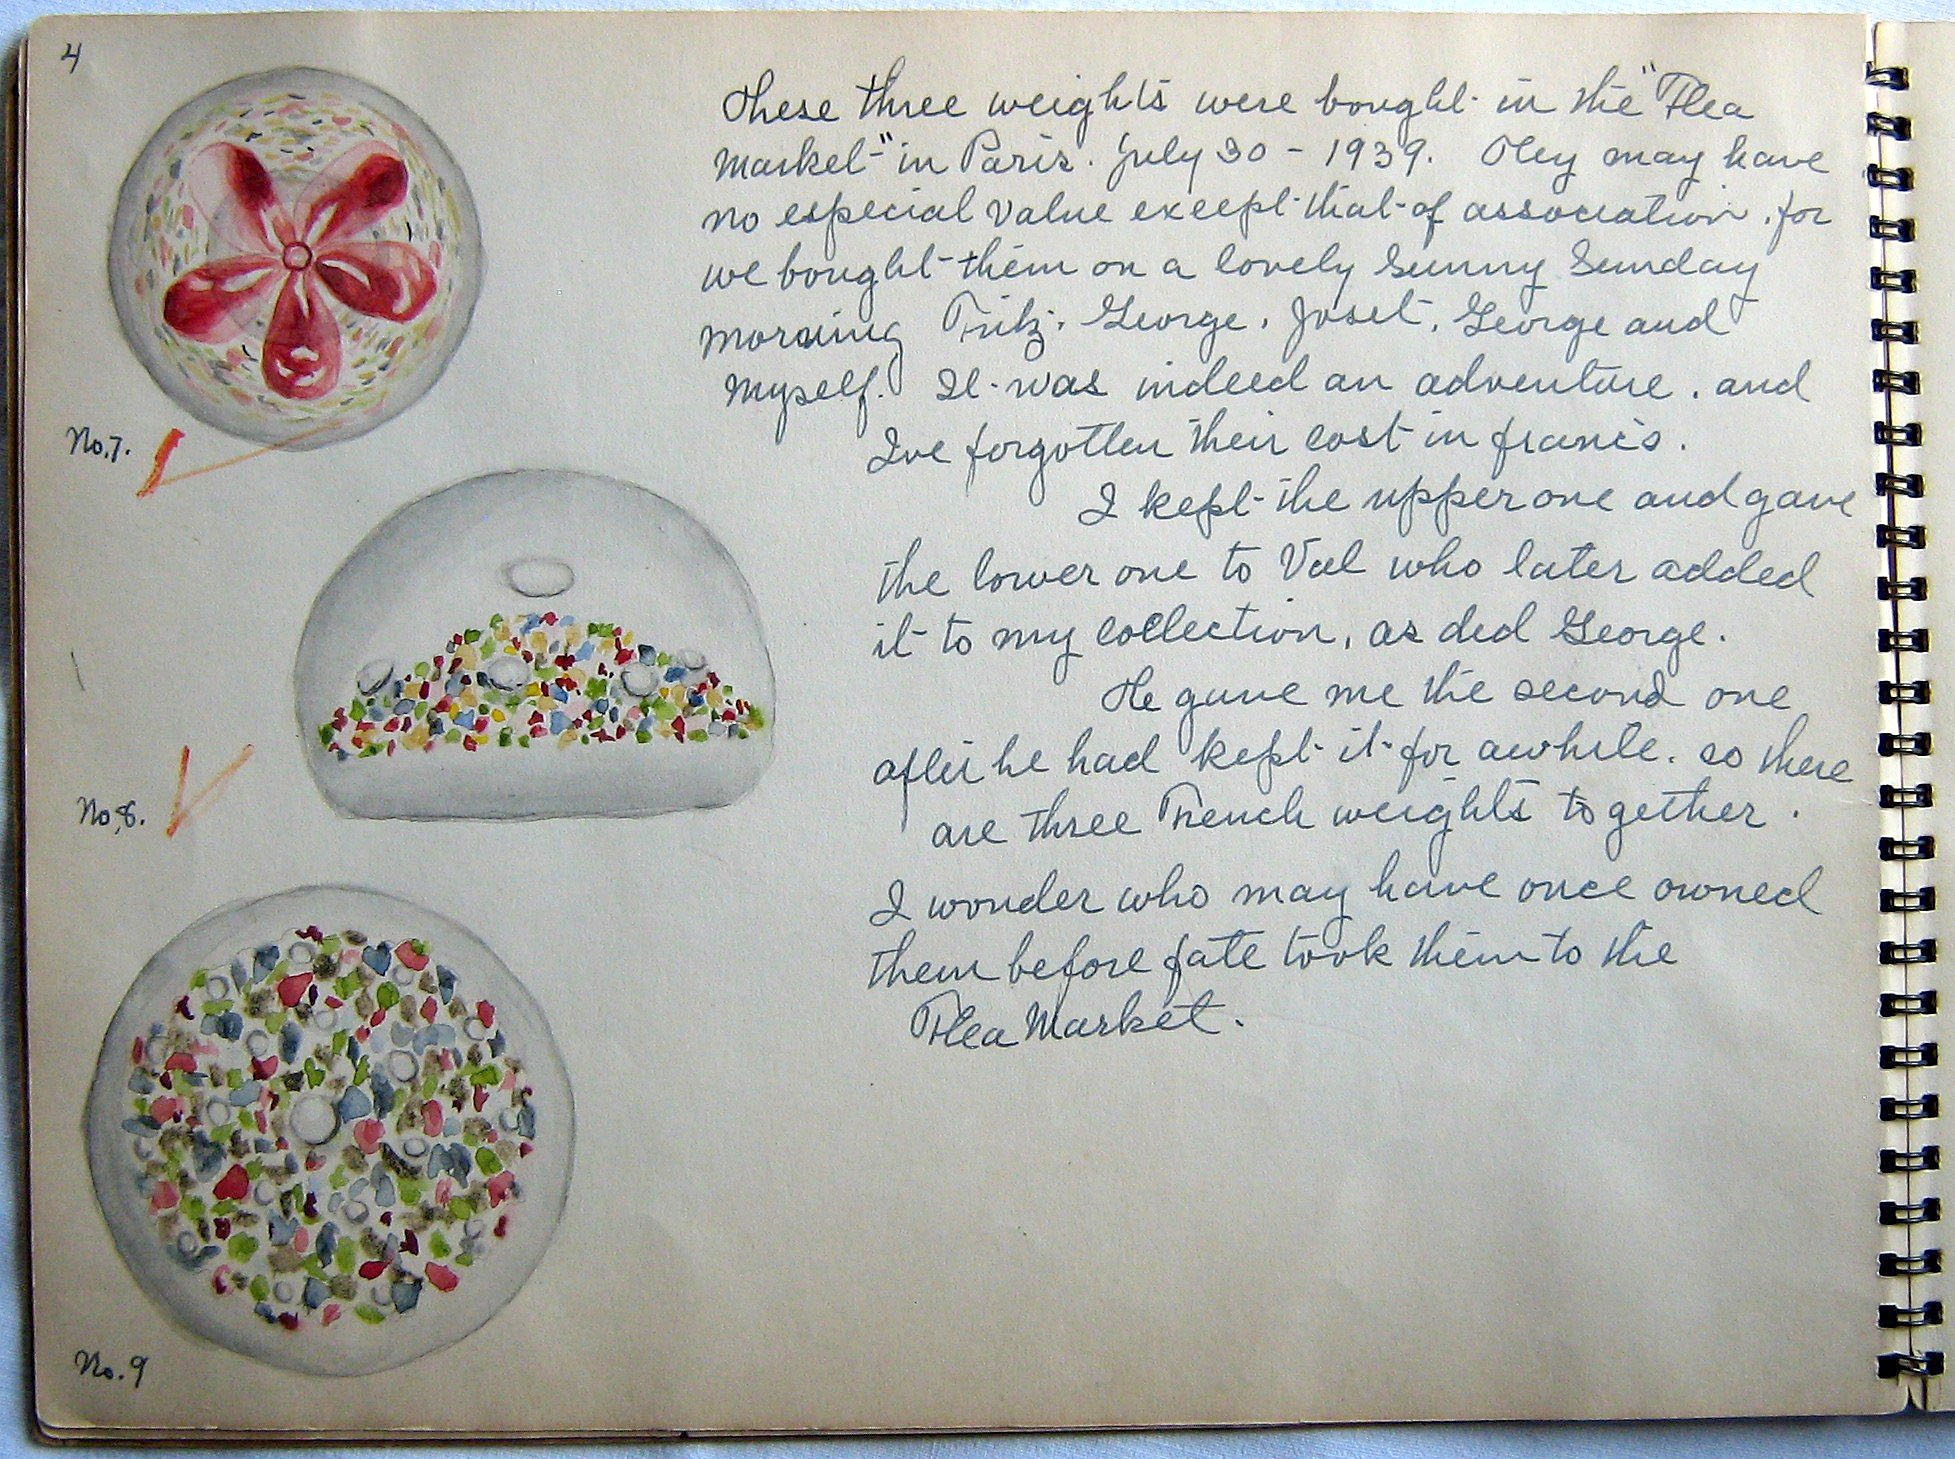 4
These three weights were bought in the "Flea
Market" in Paris. July 30 - 1939. They may have
no especial value except that of association. for
we bought them on a lovely Sunny Sunday
morning Fritz. George. Joset. George and
Myself. It was indeed an adventure. and
I've forgotten their cost in francs.
I kept the upper one and gave
the lower one to Val who later added
it to my collection, as did George.
He gave me the second one
after he had kept it for awhile. so there
are three French weights together.
I wonder who may have once owned
them before fate took them to the
Flea Market.
No. 7.
No. 8.
No. 9